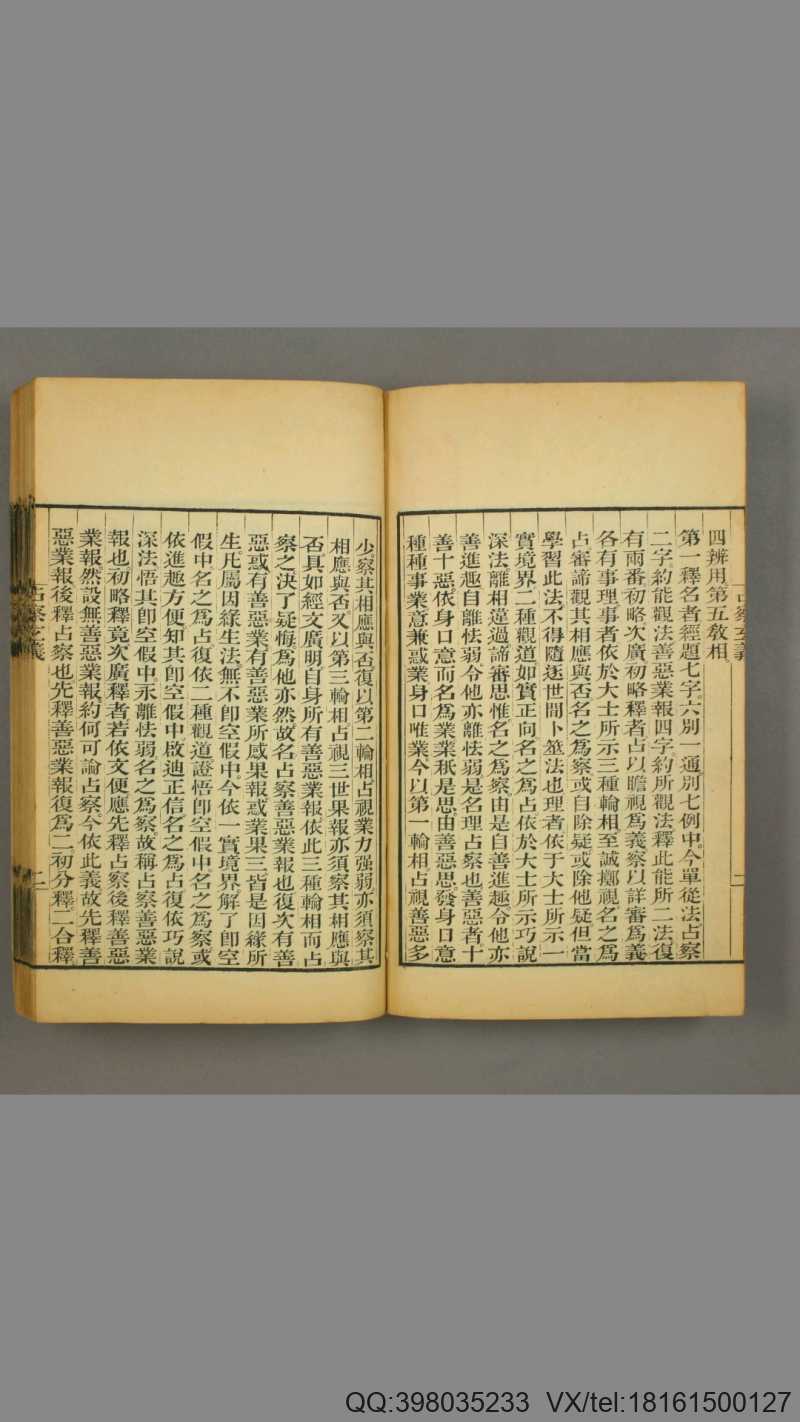 占察玄義
二
四辨用第五教相
第一釋名者經題七字六別一通別七例中今單從法占察
二字約能觀法善惡業報四字約所觀法釋此能所二法復
有兩番初略次廣初略釋者占以瞻視爲義察以詳審爲義
各有事理事者依於大士所示三種輪相至誠擲視名之爲
占審諦觀其相應與否名之爲察或自除疑或除他疑但當
學習此法不得隨逐世間卜筮法也理者依于大士所示一
實境界二種觀道如實正向名之爲占依於大士所示巧說
深法離相違過諦審思惟名之爲察由是自善進趣令他亦
善進趣自離怯弱令他亦離怯弱是名理占察也善惡者十
善十惡依身口意而名爲業業秖是思由善惡思發身口意
種種事業意兼惑業身口唯業今以第一輪相占視善惡多
少察其相應與否復以第二輪相占視業力强弱亦須察其
相應與否又以第三輪相占視三世果報亦須察其相應與
否具如經文廣明自身所有善惡業報依此三種輪相而占
察之決了疑悔爲他亦然故名占察善惡業報也復次有善
惡或有善惡業有善惡業所感果報或業果三皆是因緣所
生凡屬因緣生法無不卽空假中今依一實境界解了卽空
假中名之爲占復依二種觀道證悟卽空假中名之爲察或
依進趣方便知其卽空假中啟迪正信名之爲占復依巧說
深法悟其卽空假中示離怯弱名之爲察故稱占察善惡業
報也初略釋竟次廣釋者若依文便應先釋占察後釋善惡
業報然設無善惡業報約何可論占察今依此義故先釋善
惡業報後釋占察也先釋善惡業報復爲二初分釋二合釋
占察玄義
二
QQ:398035233 VX/tel:18161500127